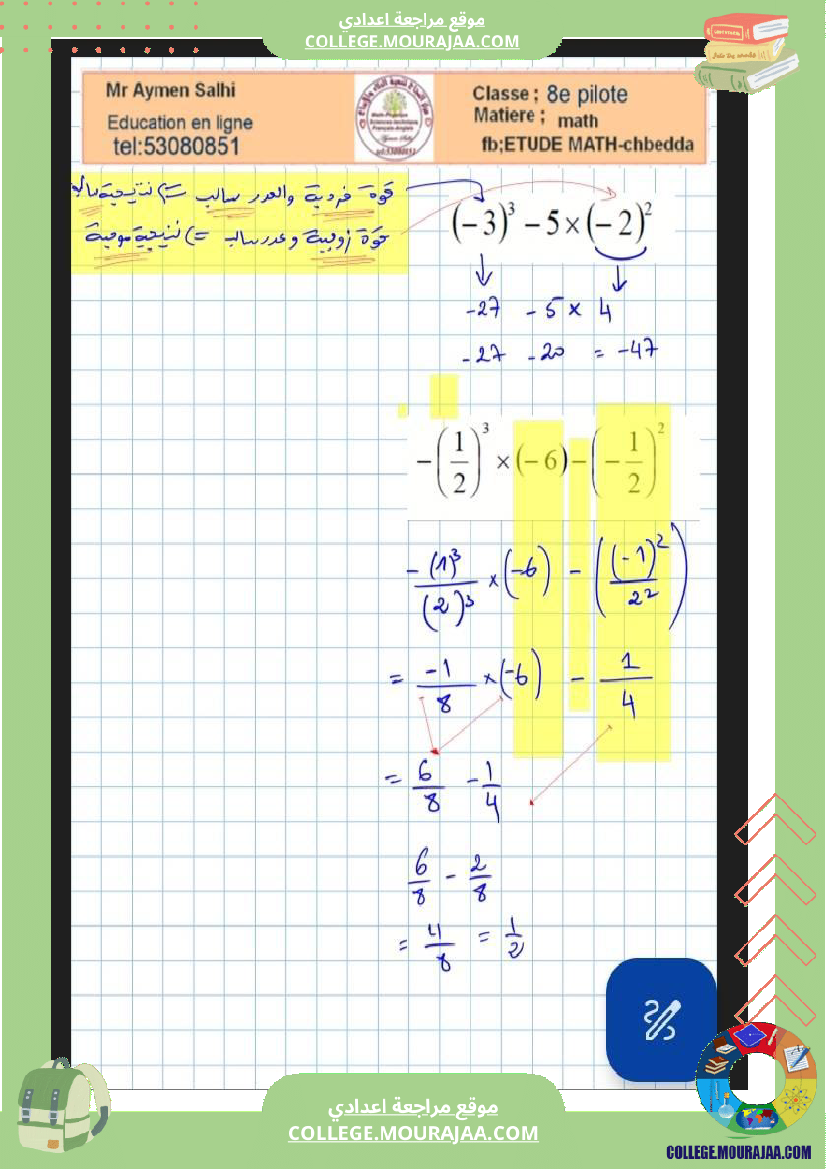 موقع مراجعة اعدادي
COLLEGE.MOURAJAA.COM
Mr Aymen Salhi
Education en ligne
tel:53080851
Classe ; 8e pilote
Matiere ; math
fb;ETUDE MATH-chbedda
قوة فردية والعدد سالب => نتيجة سالبة
قوة زوجية وعدد سالب => نتيجة موجبة
(-3)³ - 5×(-2)²
-27 - 5 × 4
-27 - 20 = -47
-(1/2)³ × (-6) - (-1/2)²
-(1)³/(2)³ × (-6) - ((-1)²/2²)
= -1/8 × (-6) - 1/4
= 6/8 - 1/4
6/8 - 2/8
= 4/8 = 1/2
موقع مراجعة اعدادي
COLLEGE.MOURAJAA.COM
COLLEGE.MOURAJAA.COM